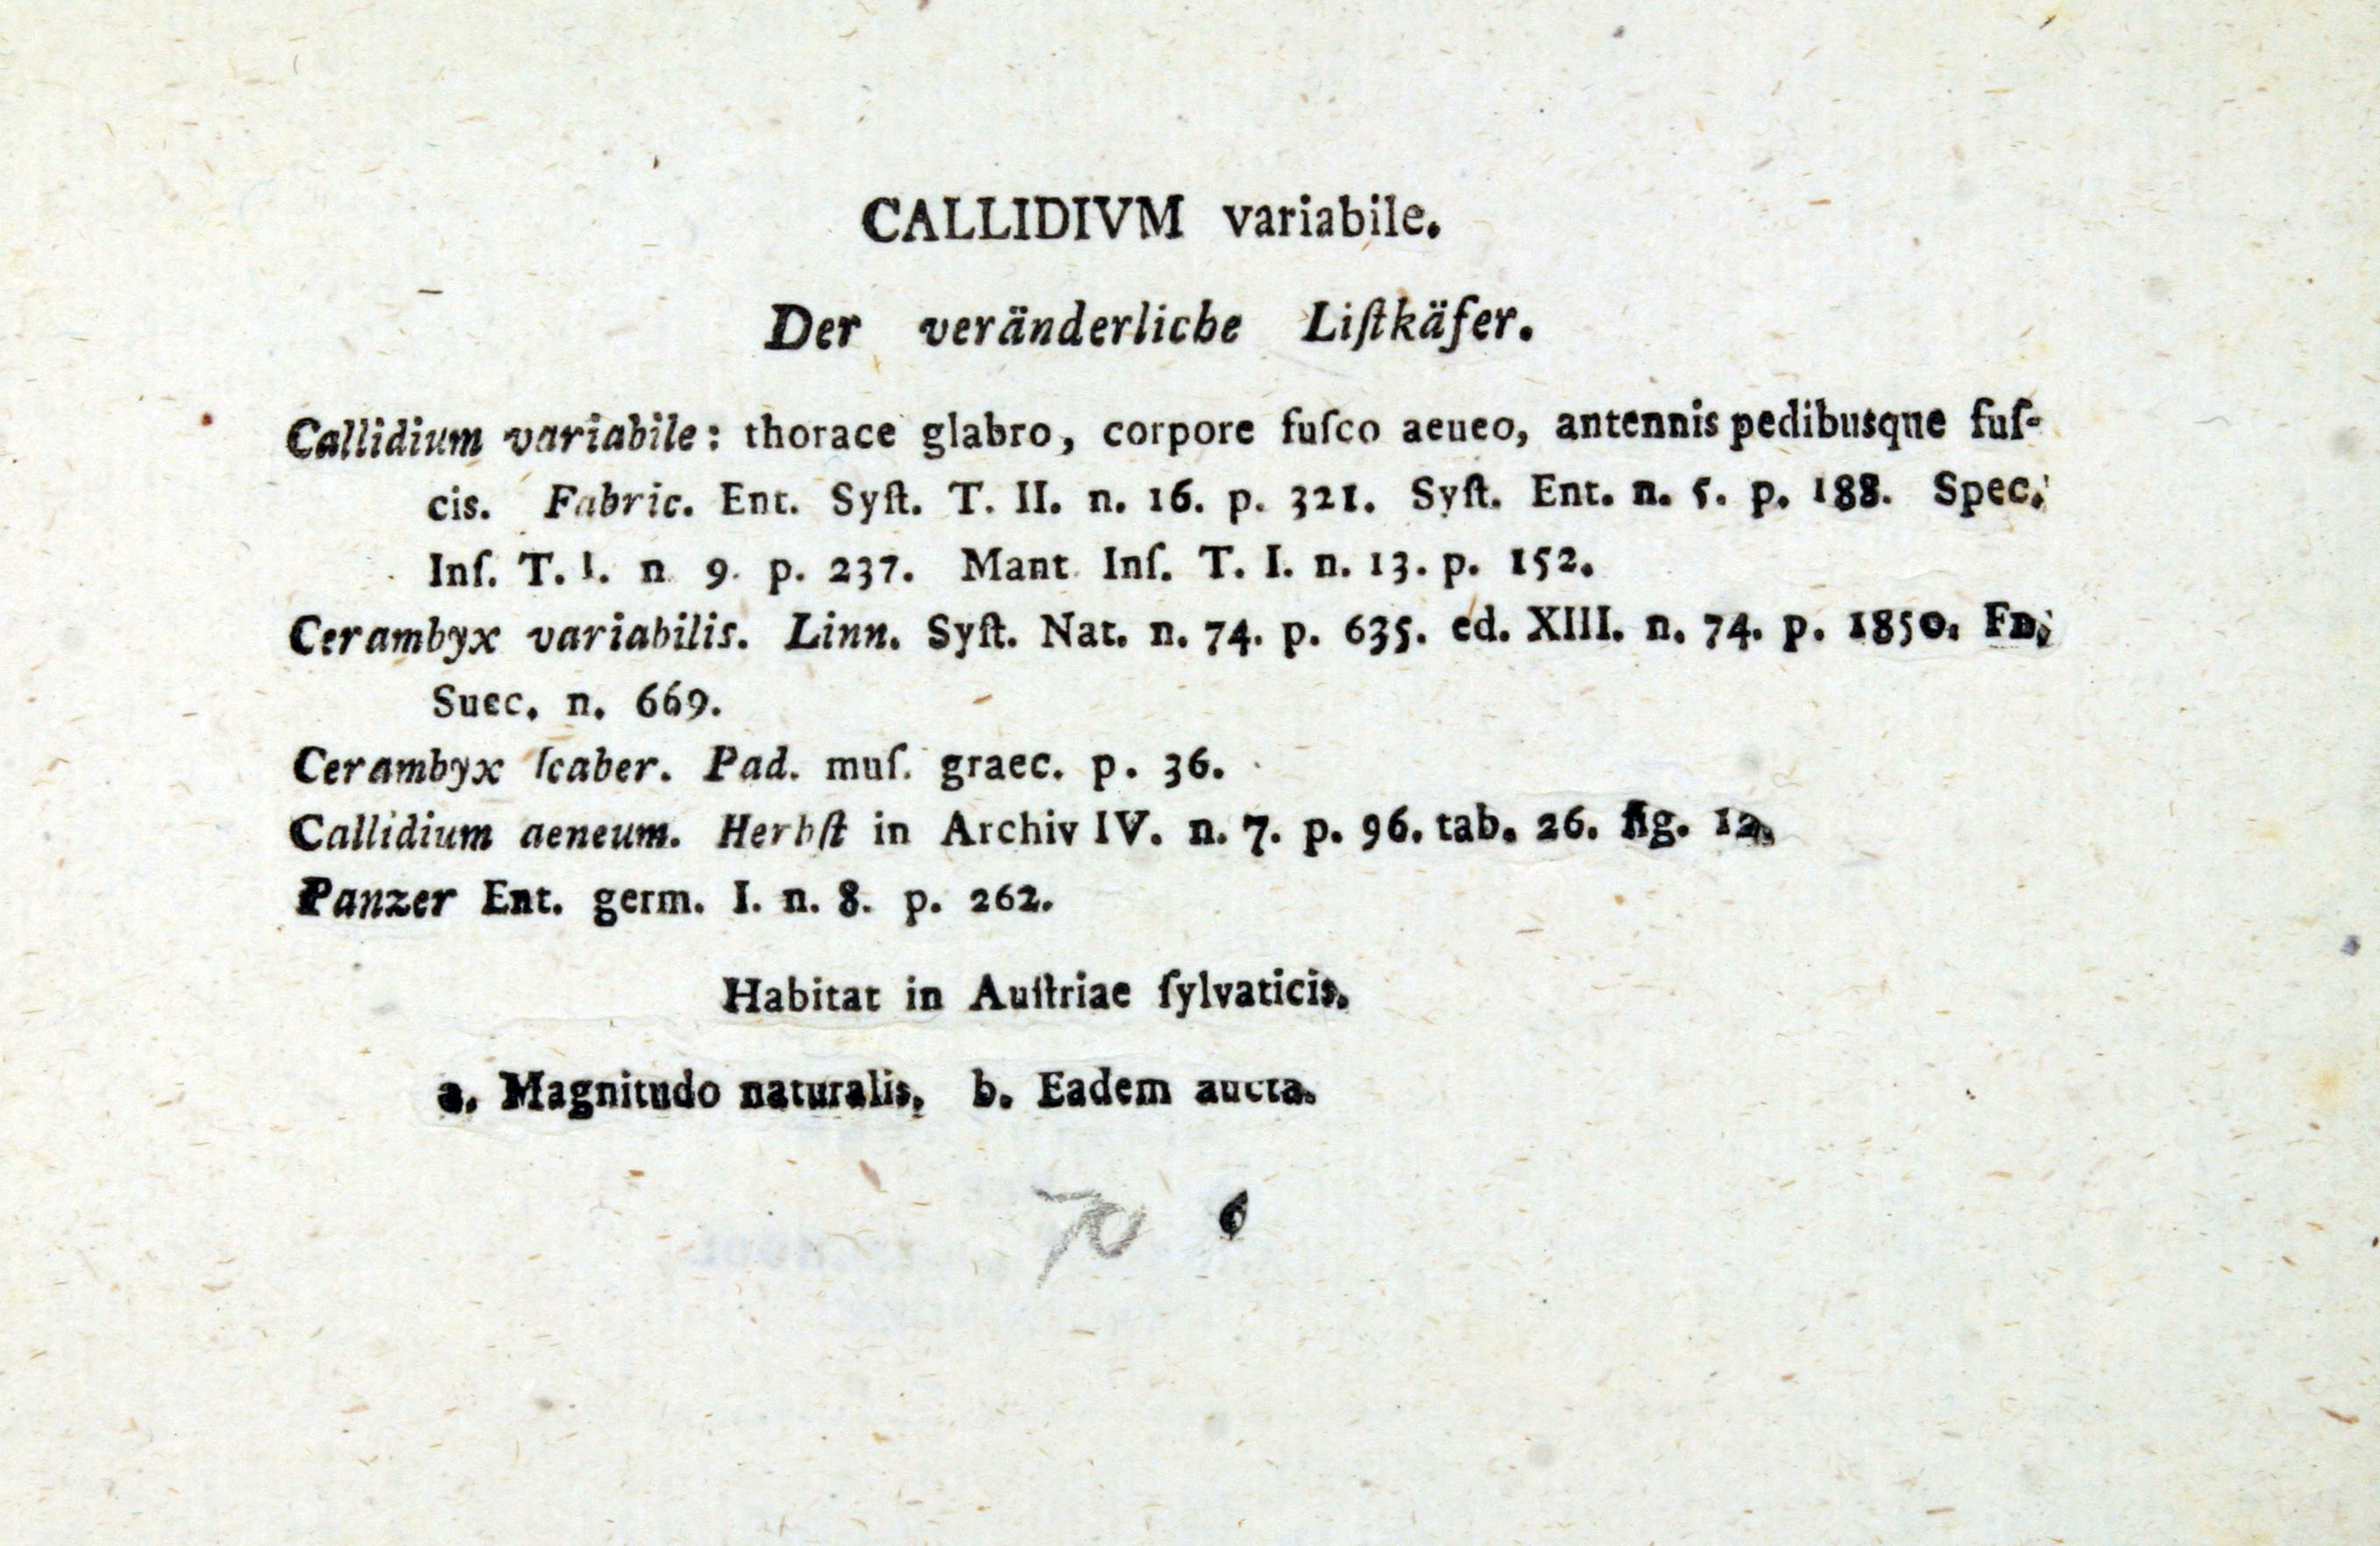 CALLIDIVM variabile.
Der veränderliche Liſtkäfer.
Callidium variabile: thorace glabro, corpore fuſco aeueo, antennis pedibusque fuſ-
cis. Fabric. Ent. Syſt. T. II. n. 16. p. 321. Syſt. Ent. n. 5. p. 188. Spec.
Inſ. T. I. n 9. p. 237. Mant. Inſ. T. I. n. 13. p. 152.
Cerambyx variabilis. Linn. Syſt. Nat. n. 74. p. 635. ed. XIII. n. 74. p. 1850. Fn.
Suec. n. 669.
Cerambyx ſcaber. Pad. muſ. graec. p. 36.
Callidium aeneum. Herbſt in Archiv IV. n. 7. p. 96. tab. 26. fig. 12.
Panzer Ent. germ. I. n. 8. p. 262.
Habitat in Auſtriae ſylvaticis.
a. Magnitudo naturalis. b. Eadem aucta.
70 6